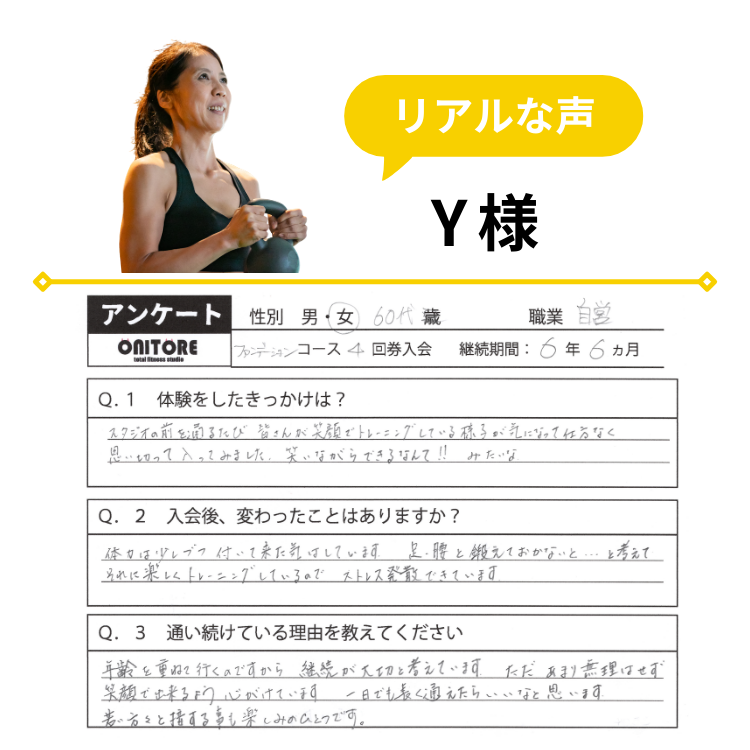 リアルな声
Y様
アンケート 性別 男・女 60代歳 職業 自営
ONITORE total fitness studio ファンデーションコース 4 回券入会 継続期間： 6 年 6 ヵ月
Q. 1 体験をしたきっかけは？
スタジオの前を通るたび 皆さんが笑顔でトレーニングしている様子が気になって仕方なく
思い切って入ってみました。笑いながらできるなんて!! みたいな
Q. 2 入会後、変わったことはありますか？
体力は少しづつ付いて来た気はしています 足・腰と鍛えておかないと…と考えて
それに楽しくトレーニングしているので ストレス発散できています
Q. 3 通い続けている理由を教えてください
年齢を重ねて行くのですから 継続が大切と考えています ただ あまり無理はせず
笑顔で出来るよう 心がけています 一日でも長く通えたらいいなと思います
若い方々と接する事も楽しみのひとつです。